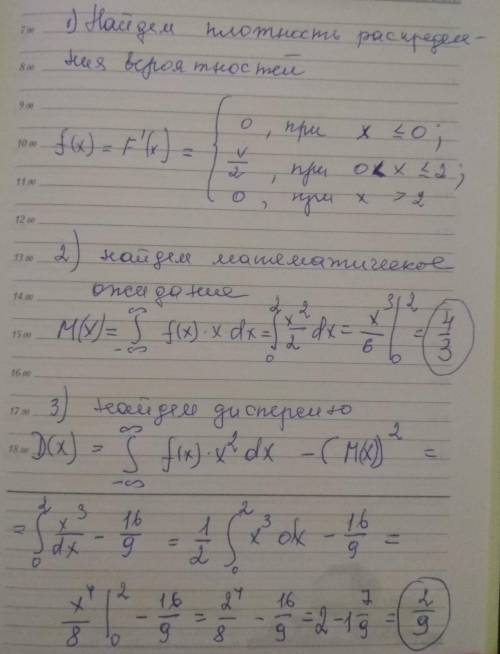 7 00 1) Найдем плотность распределе-
8 00 ния вероятностей
9 00
0, при x ≤ 0;
10 00 f(x) = F'(x) = { x/2, при 0 < x ≤ 2;
11 00 0, при x > 2
12 00
13 00 2) найдем математическое
14 00 ожидание
15 00 M(X) = ∫_{-∞}^{∞} f(x)·x dx = ∫_0^2 x^2/2 dx = x^3/6 |_0^2 = 4/3
16 00
17 00 3) найдем дисперсию
18 00 D(X) = ∫_{-∞}^{∞} f(x)·x^2 dx - (M(X))^2 =
= ∫_0^2 x^3/dx - 16/9 = 1/2 ∫_0^2 x^3 dx - 16/9 =
x^4/8 |_0^2 - 16/9 = 2^4/8 - 16/9 = 2 - 1 7/9 = 2/9